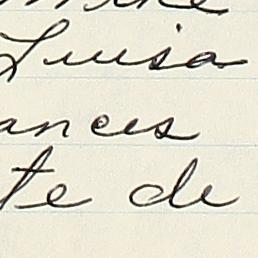 Luisa
ances
te de